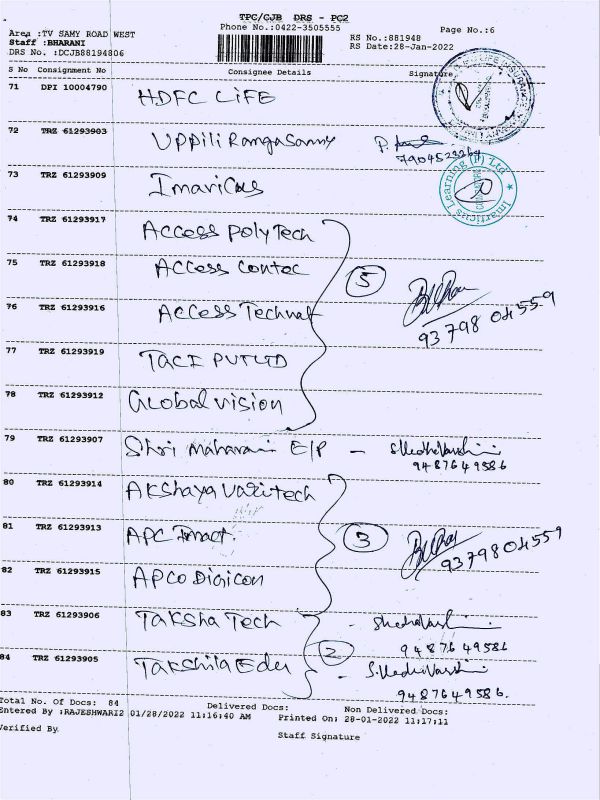 TPC/CJB DRS - PC2
Phone No.:0422-3505555
Page No.:6
Area :TV SAMY ROAD WEST
Staff :BHARANI
DRS No. :DCJB88194806
RS No.:881948
RS Date:28-Jan-2022
S No Consignment No Consignee Details Signature
71 DPI 10004790 HDFC LIFE
72 TRZ 61293903 Uppili Ramgasamy
73 TRZ 61293909
Learning (P) Ltd
74 TRZ 61293917 Access polyTech
75 TRZ 61293918 Access Contec
5
76 TRZ 61293916 Access
93798 04559
77 TRZ 61293919 TACI PVT LTD
78 TRZ 61293912 Global vision
79 TRZ 61293907 Shri Maharani E/P -
9487649586
80 TRZ 61293914 Akshaya
81 TRZ 61293913 APC
3
9379804559
82 TRZ 61293915 APCO Digicon
83 TRZ 61293906 Taksha Tech -
9487649586
2
84 TRZ 61293905 Takshila Edu -
9487649586.
Total No. Of Docs: 84 Delivered Docs: Non Delivered Docs:
Entered By :RAJESHWARI2 01/28/2022 11:16:40 AM Printed On: 28-01-2022 11:17:11
Verified By
Staff Signature